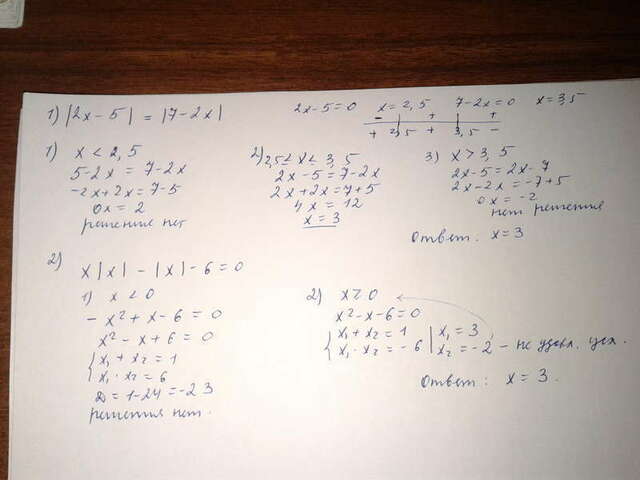 1) |2x - 5| = |7 - 2x|
2x - 5 = 0 x = 2,5 7 - 2x = 0 x = 3,5
- + +
+ 2,5 + 3,5 -
1) x < 2,5
5 - 2x = 7 - 2x
-2x + 2x = 7 - 5
0x = 2
решения нет
2) 2,5 ≤ x ≤ 3,5
2x - 5 = 7 - 2x
2x + 2x = 7 + 5
4x = 12
x = 3
3) x > 3,5
2x - 5 = 2x - 7
2x - 2x = -7 + 5
0x = -2
нет решения
Ответ: x = 3
2)
x|x| - |x| - 6 = 0
1) x < 0
-x² + x - 6 = 0
x² - x + 6 = 0
{ x₁ + x₂ = 1
x₁ · x₂ = 6
D = 1 - 24 = -23
решения нет.
2) x ≥ 0
x² - x - 6 = 0
{ x₁ + x₂ = 1 | x₁ = 3
x₁ · x₂ = -6 | x₂ = -2 - не удовл. усл.
Ответ: x = 3.